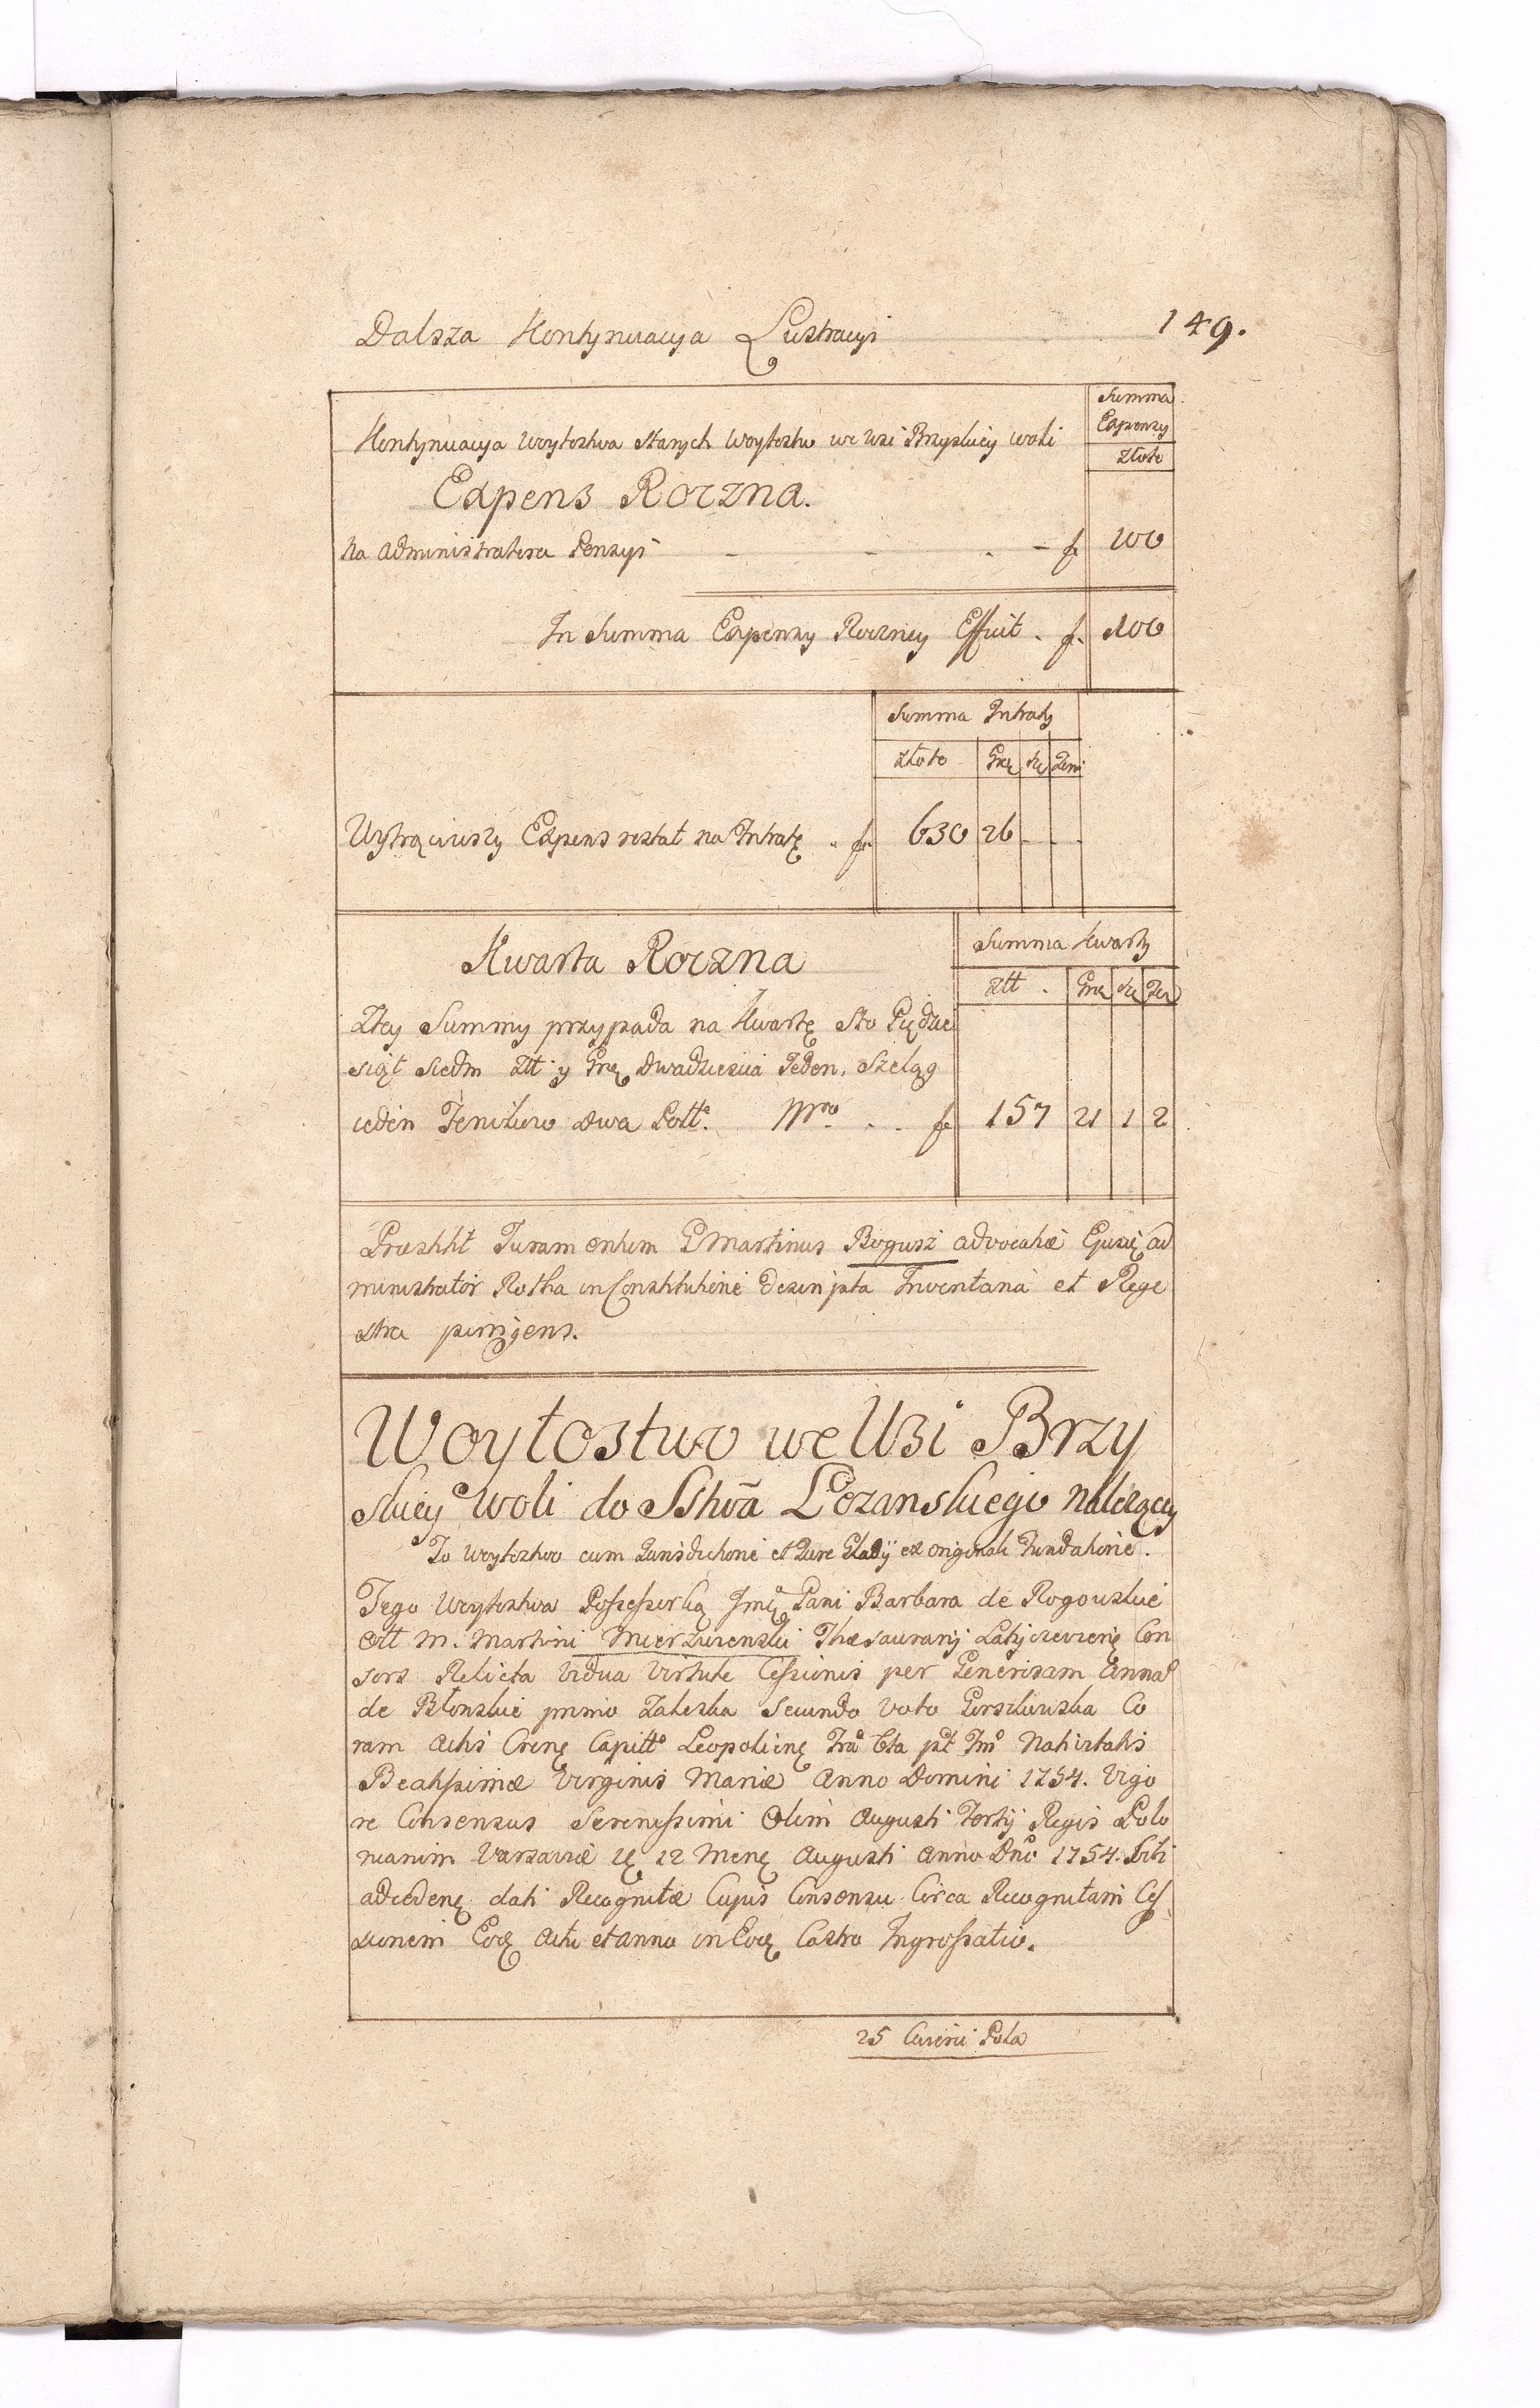 Dalsza Kontynuacya Lustracyi 149.
Summa
Expensy
Kontynuacya Woytostwa Starych Woytostw we Wsi Brzyskiey Woli
Złote
Expens Roczna.
Na Administratora Pensyi - - . - f 100
In Summa Expensy Roczney Effuit . f. 100
Summa Intraty
Złote Grę Sze Deni
Wytrąciwszy Expens restat na Intratę . f. 630 26 . . .
Kwarta Roczna Summa Kwarty
Złł . Grę Sze Den
Ztey Summy przypada na Kwartę Sto Pięcdzie
siąt Siedm Złł y Grę dwadziescia Jeden, Szeląg
ieden Feników dwa Poll. Mro . . f 157 21 1 2
Praestitt Juramentum G Martinus Bogusz Advocatiæ Ejusdę Ad
ministrator Rotha in Constitutione descripta Inventaria et Rege
stra porrigens.
Woytostwo we Wsi Brzy
skiey Woli do Sstwa Leżanskiego należący
To Woytostwo cum Jurisdictione et Jure Gladij ex originali Fundatione.
Tego Woytostwa Possessorką Jmę Pani Barbara de Rogowskie
Olł M. Martini Mierzwienski Thesaurarij Latyczeviensę Con
sors Relicta Vidua Virtute Cessionis per Generosam Annam
de Błonskie primo Zaleska Secundo Voto Gorszkowska Co
ram Actis Crenę Capittᵒ Leopolienę Fra 6ta pt Fm Nativitatis
Beatissimæ Virginis Mariæ Anno Domini 1754. Vigo
re Consensus Serenissimi Olim Augusti Tertij Regis Polo
niarum Varsaviæ Dę 12 Mensę Augusti Anno Dni 1754. Sibi
ad cedenę dati Recognitæ Cujus Consensu Circa Recognitam Ces
sionem Eodę Actu et Anno in Eodę Castro Ingrossatio.
25 Curieni Pola